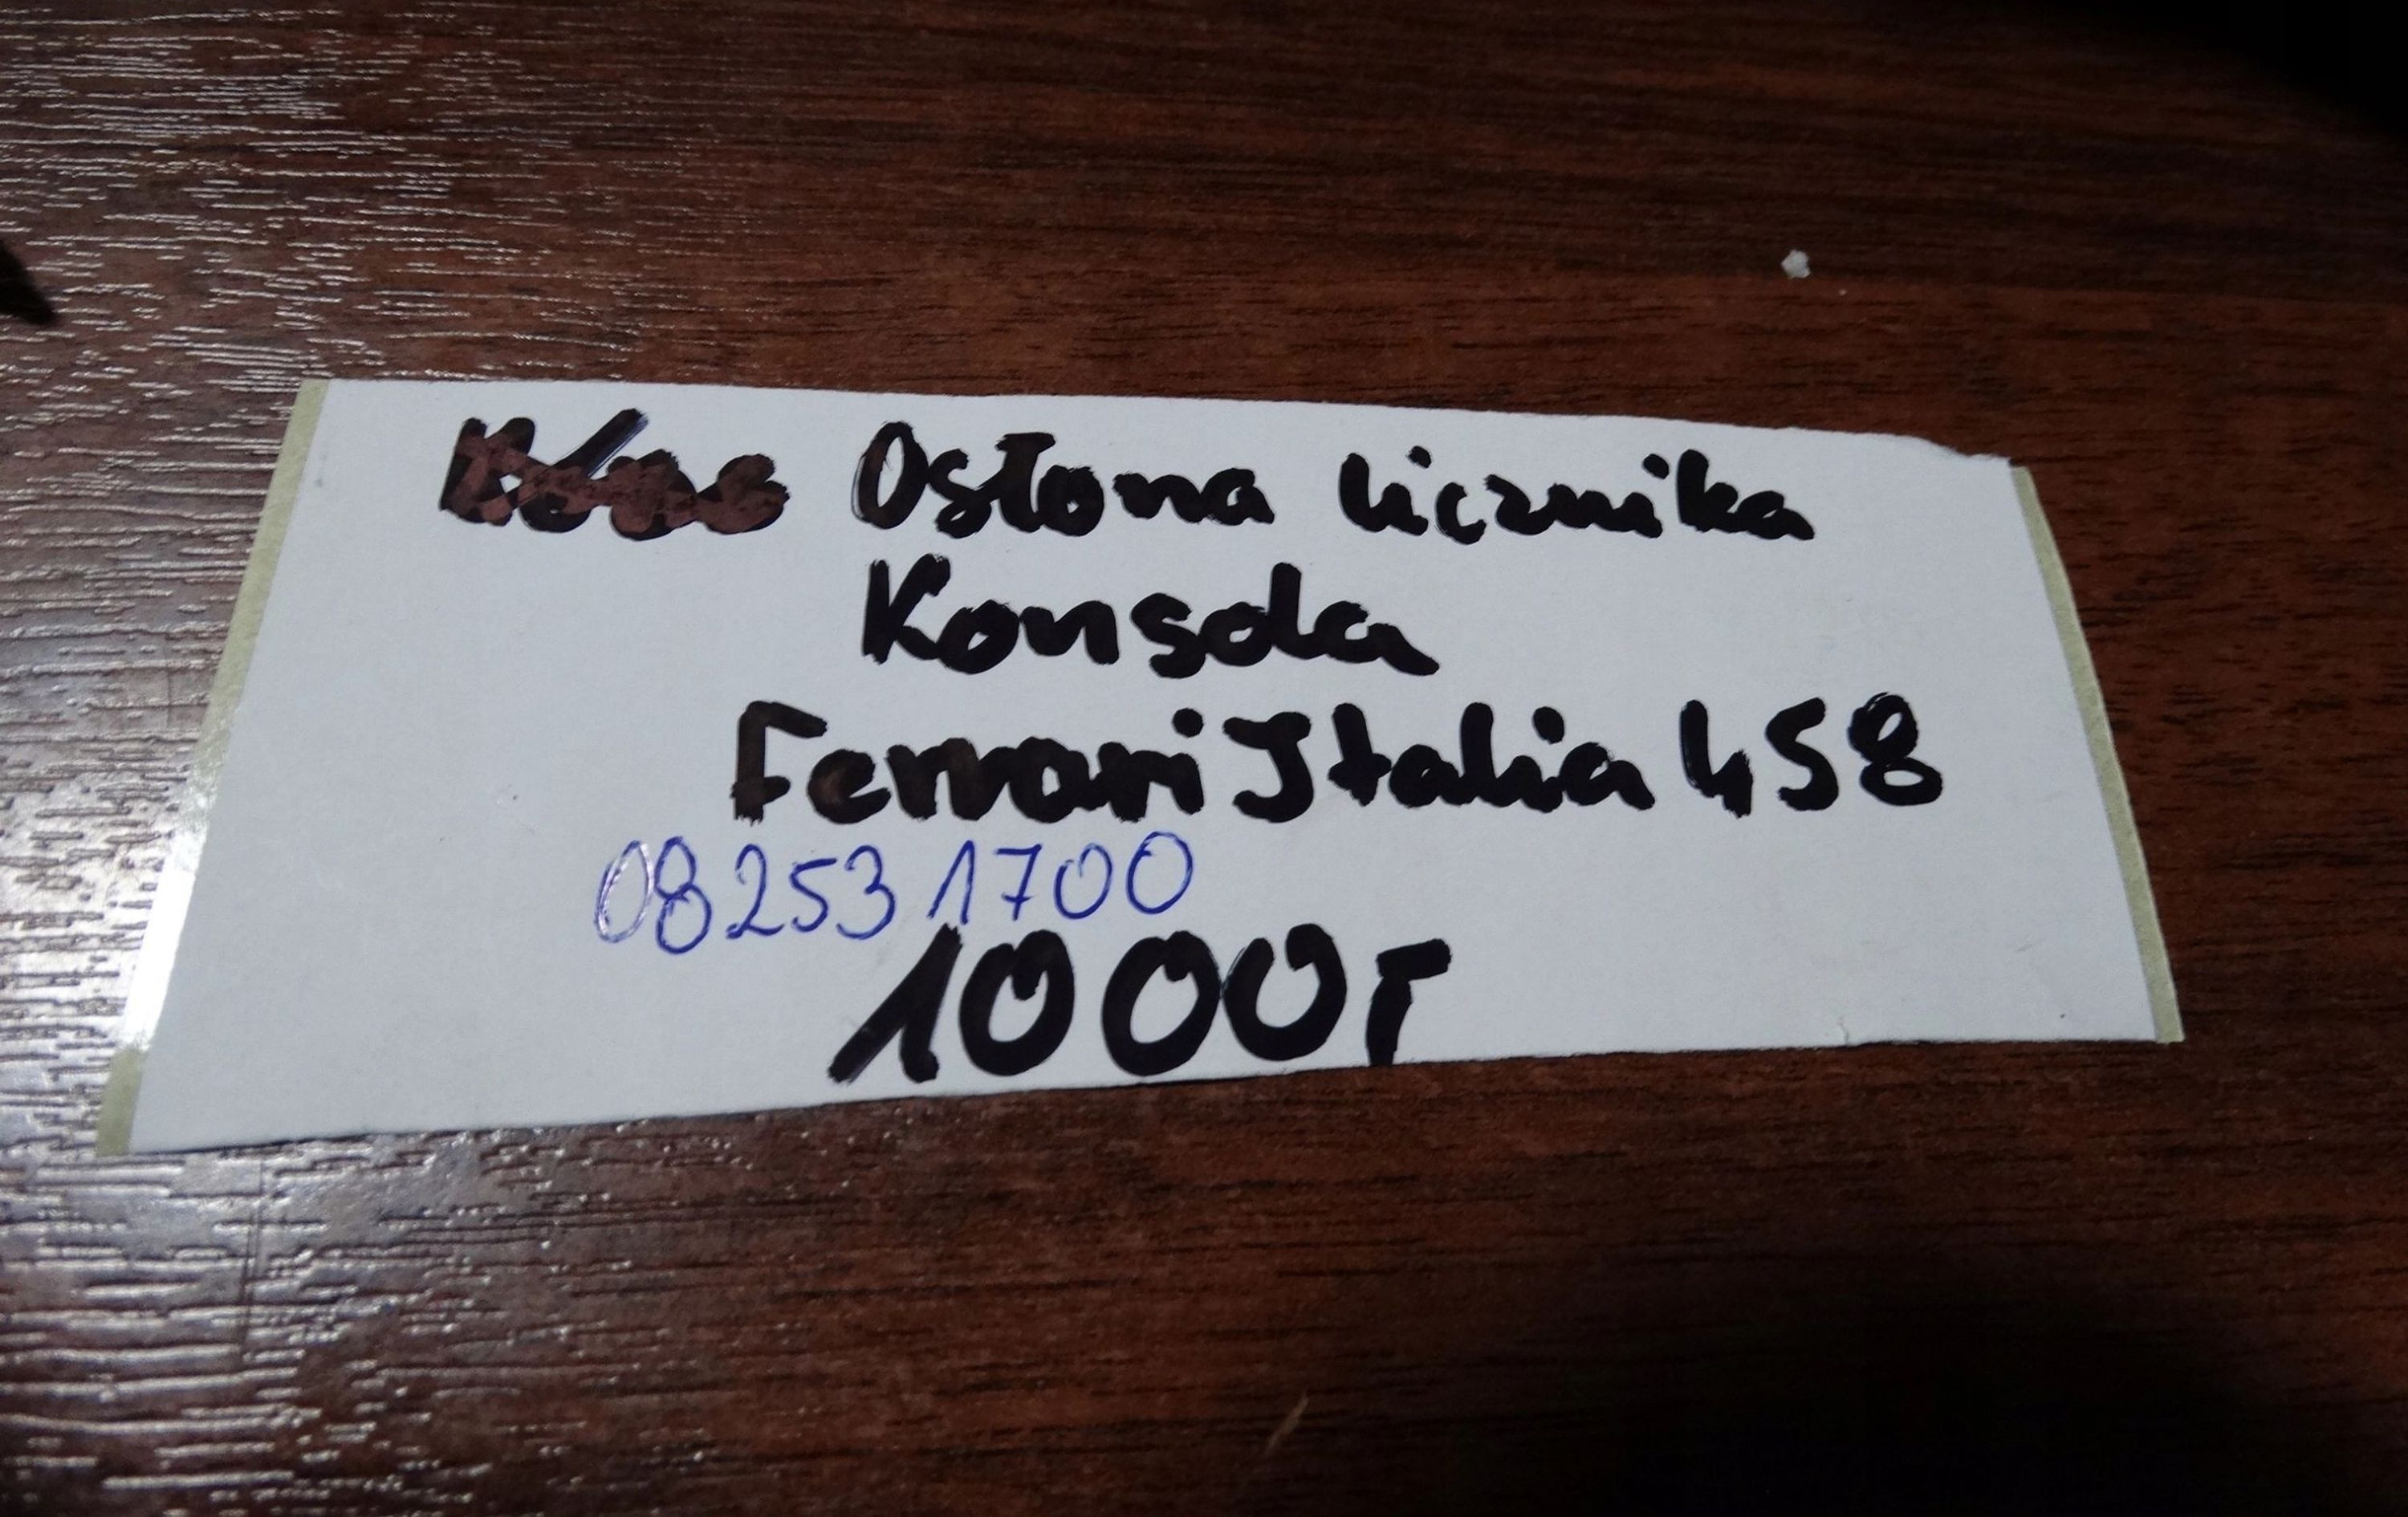 Osłona licznika
Konsola
Ferrari Italia 458
082531700
1000r